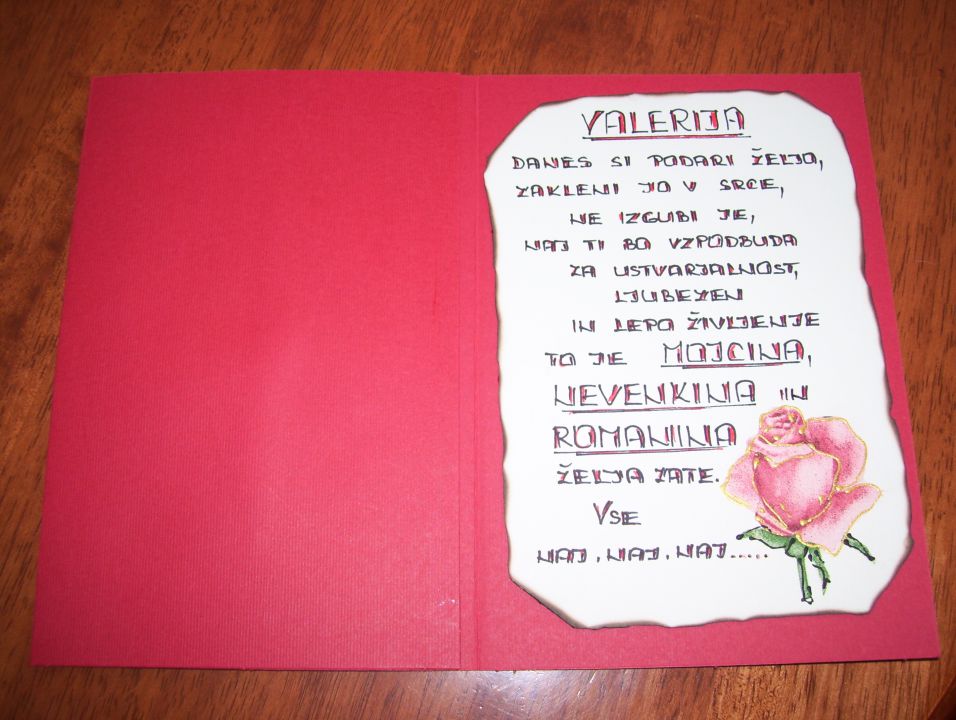 VALERIJA
DANES SI PODARI ŽELJO,
ZAKLENI JO V SRCE,
NE IZGUBI JE,
NAJ TI BO VZPODBUDA
ZA USTVARJALNOST,
LJUBEZEN
IN LEPO ŽIVLJENJE
TO JE MOJCINA,
NEVENKINA IN
ROMANINA
ŽELJA ZATE.
VSE
NAJ, NAJ, NAJ.....